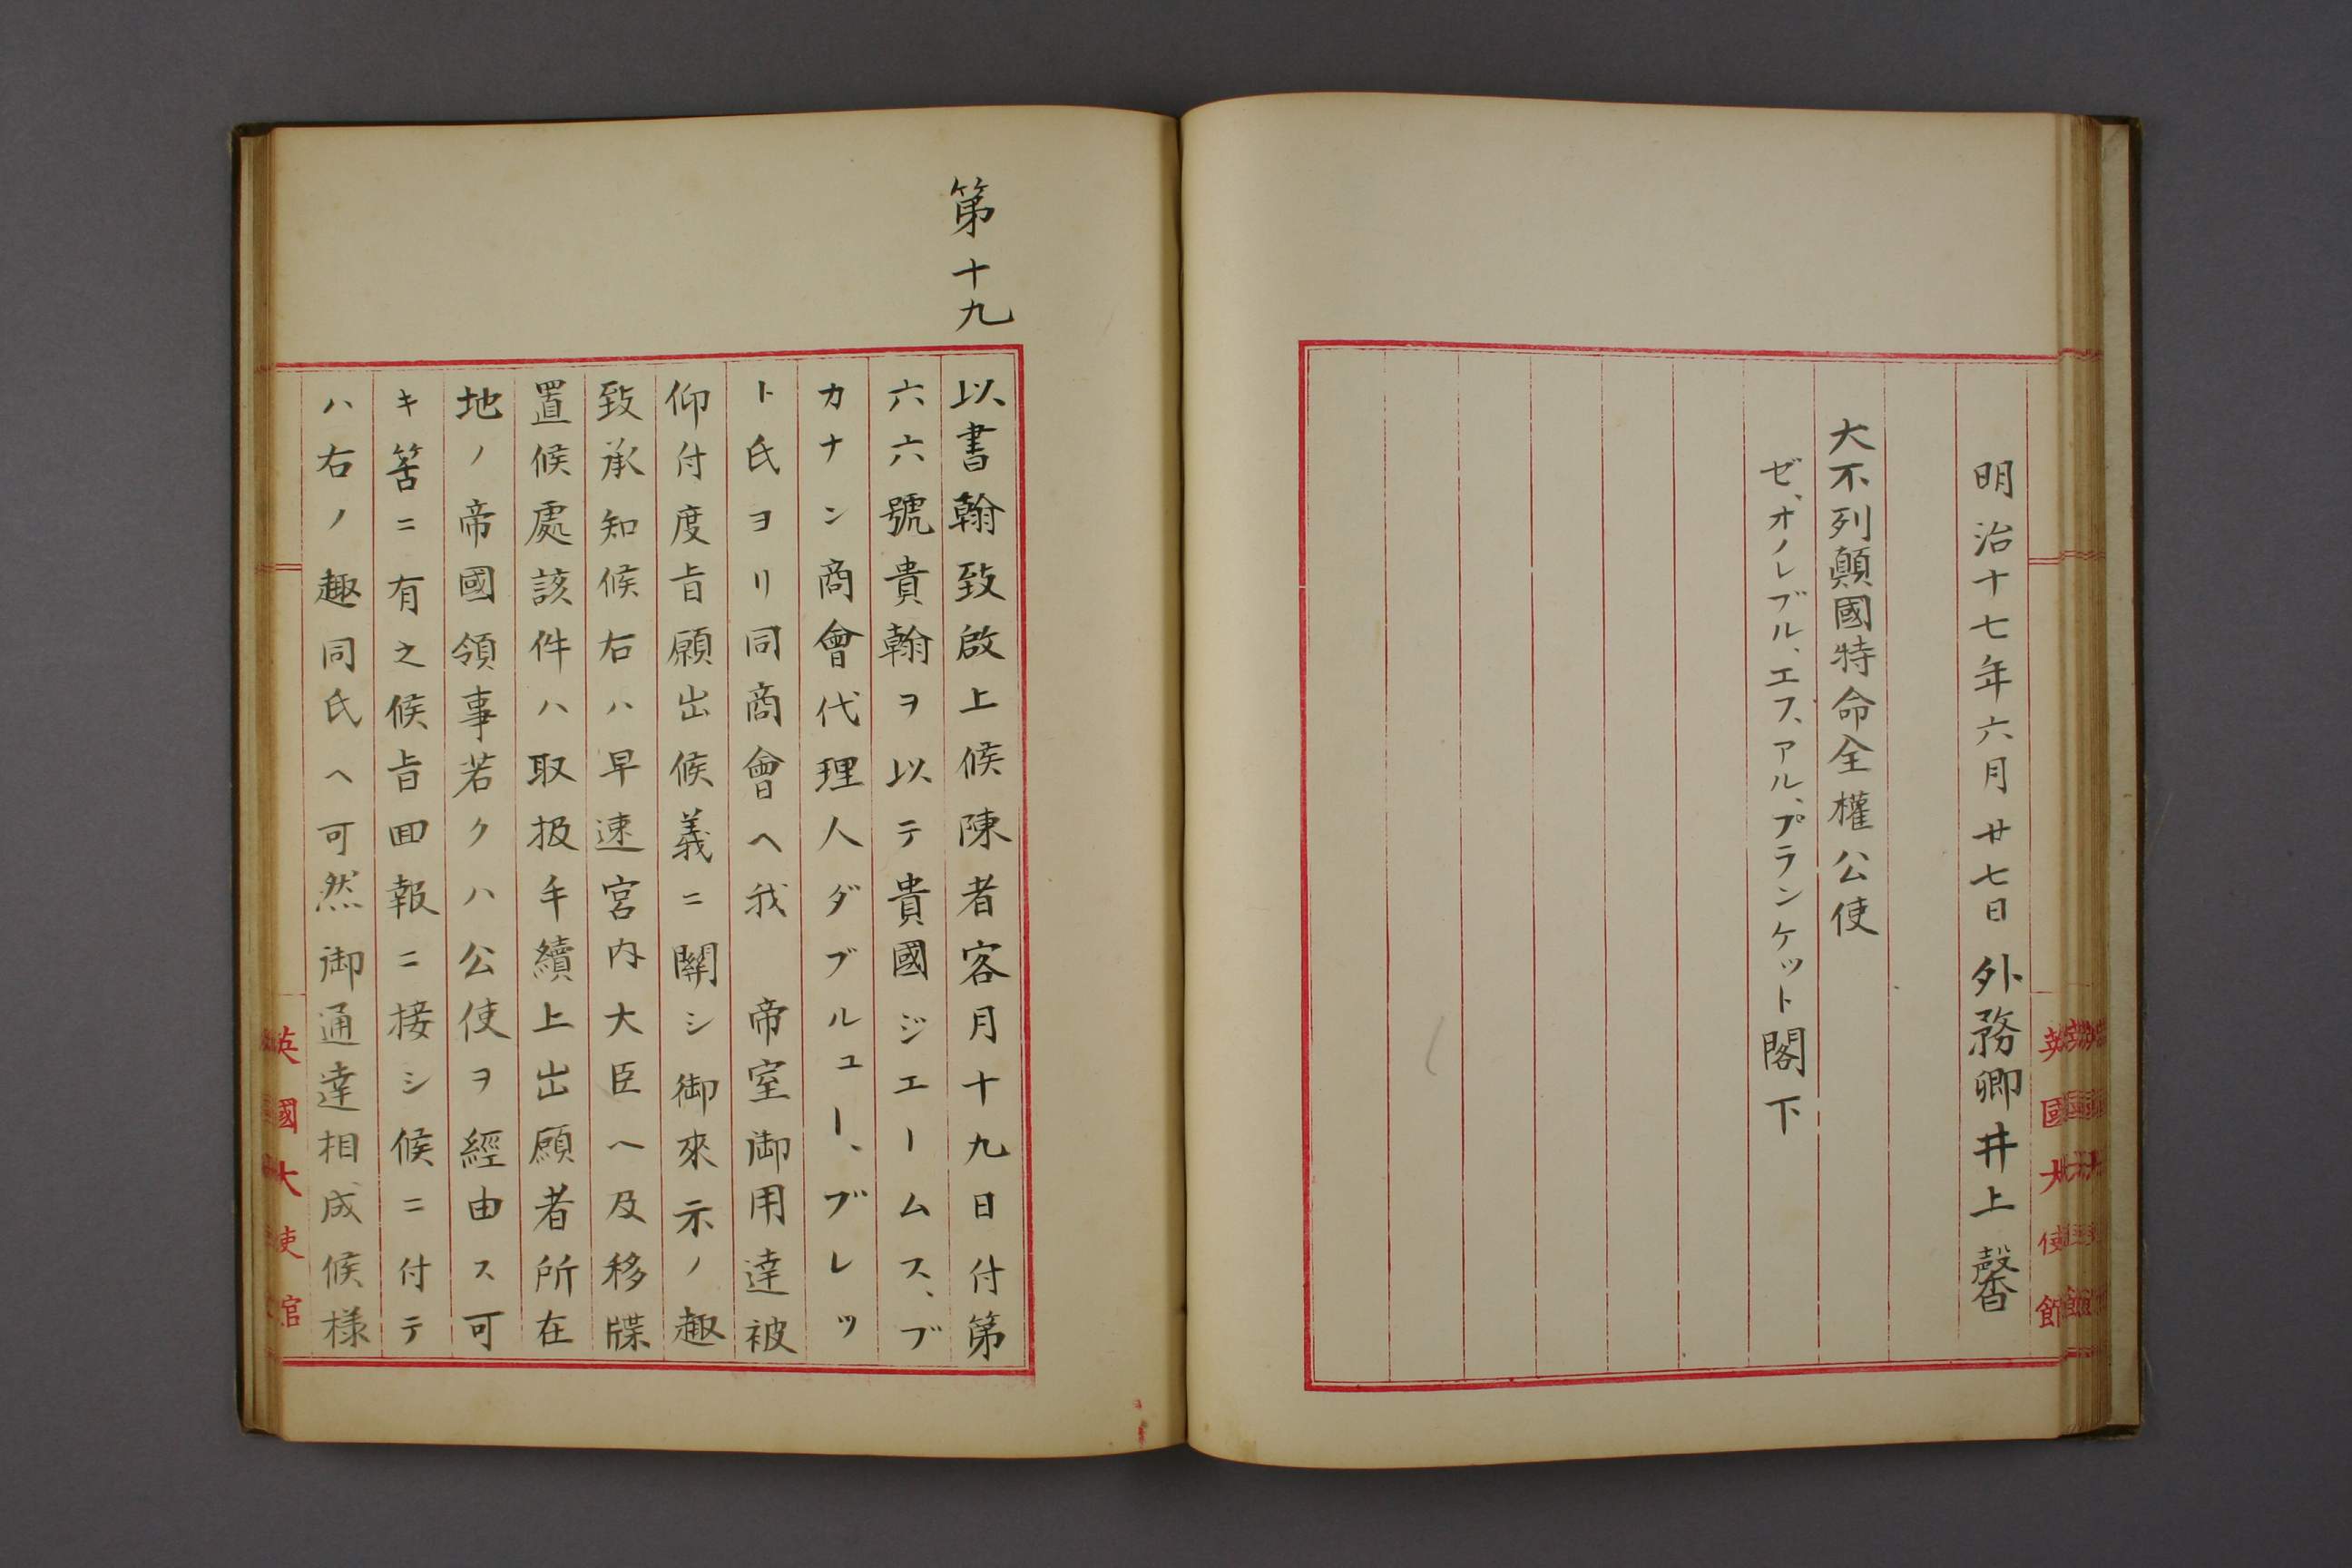 明治十七年六月廿七日 外務卿井上馨
大不列顛國特命全權公使
ゼ、オノレブル、エフ、アル、プランケット閣下
英國大使館
第十九
以書翰致啟上候陳者客月十九日付第
六六號貴翰ヲ以テ貴國ジエームス、ブ
カナン商會代理人ダブルユー、ブレッ
ト氏ヨリ同商會ヘ我 帝室御用達被
仰付度旨願出候義ニ關シ御來示ノ趣
致承知候右ハ早速宮内大臣ヘ及移牒
置候處該件ハ取扱手續上出願者所在
地ノ帝國領事若クハ公使ヲ經由ス可
キ筈ニ有之候旨回報ニ接シ候ニ付テ
ハ右ノ趣同氏ヘ可然御通達相成候様
英國大使館